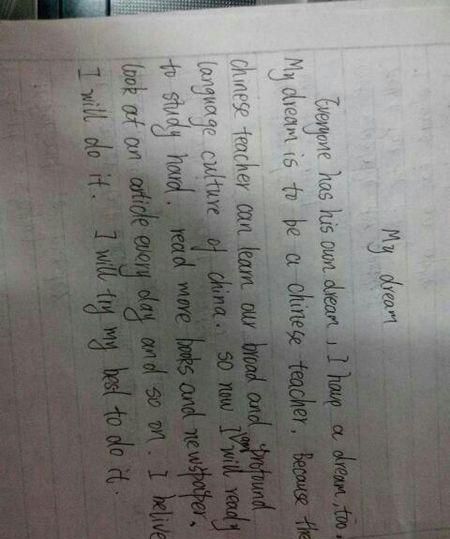 My dream
Everyone has his own dream, I have a dream, too.
My dream is to be a chinese teacher. Because the
chinese teacher can learn our broad and profound
language culture of china. so now I am will ready
to study hard. read more books and newspaper.
look at an article every day and so on. I belive
I will do it. I will try my best to do it.